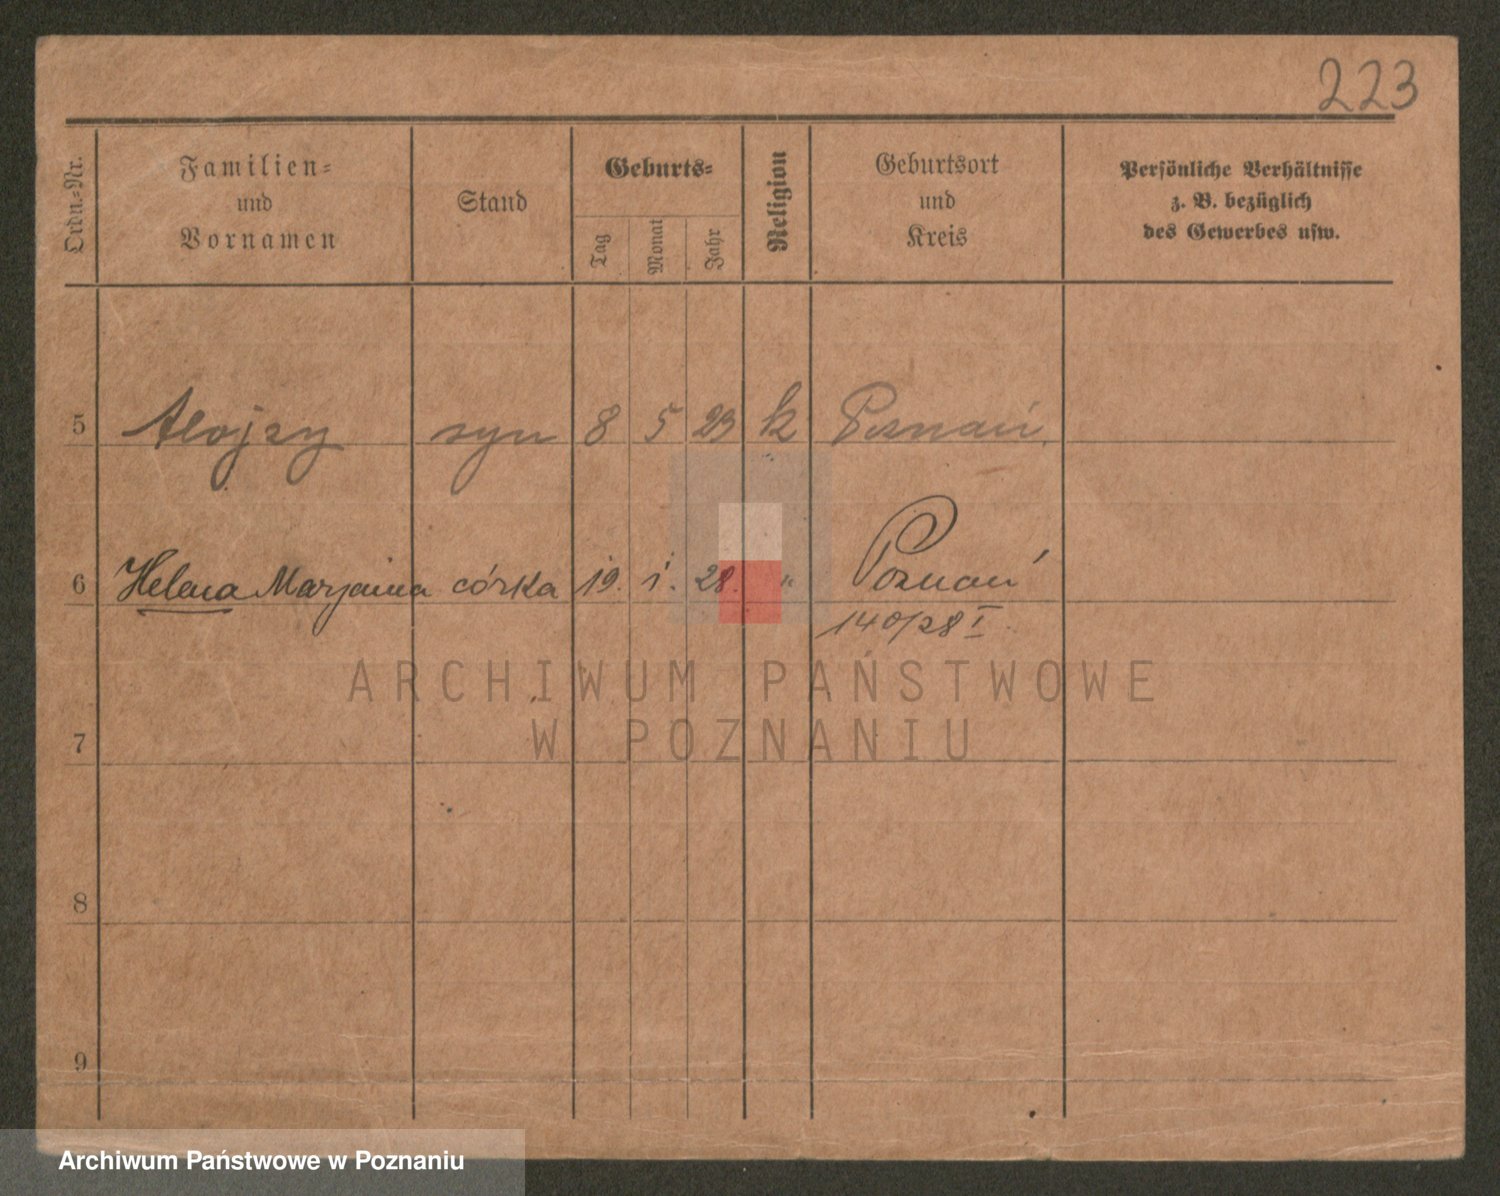 223
Ordn.-Nr.
Familien-
und
Vornamen
Stand
Geburts-
Tag
Monat
Jahr
Religion
Geburtsort
und
Kreis
Persönliche Verhältnisse
z. B. bezüglich
des Gewerbes usw.
5 Alojzy syn 8 5 23 k Poznań.
6 Helena Marjanna córka 19. 1. 28. " Poznań
140/28 I.
ARCHIWUM PAŃSTWOWE
W POZNANIU
7
8
9
Archiwum Państwowe w Poznaniu